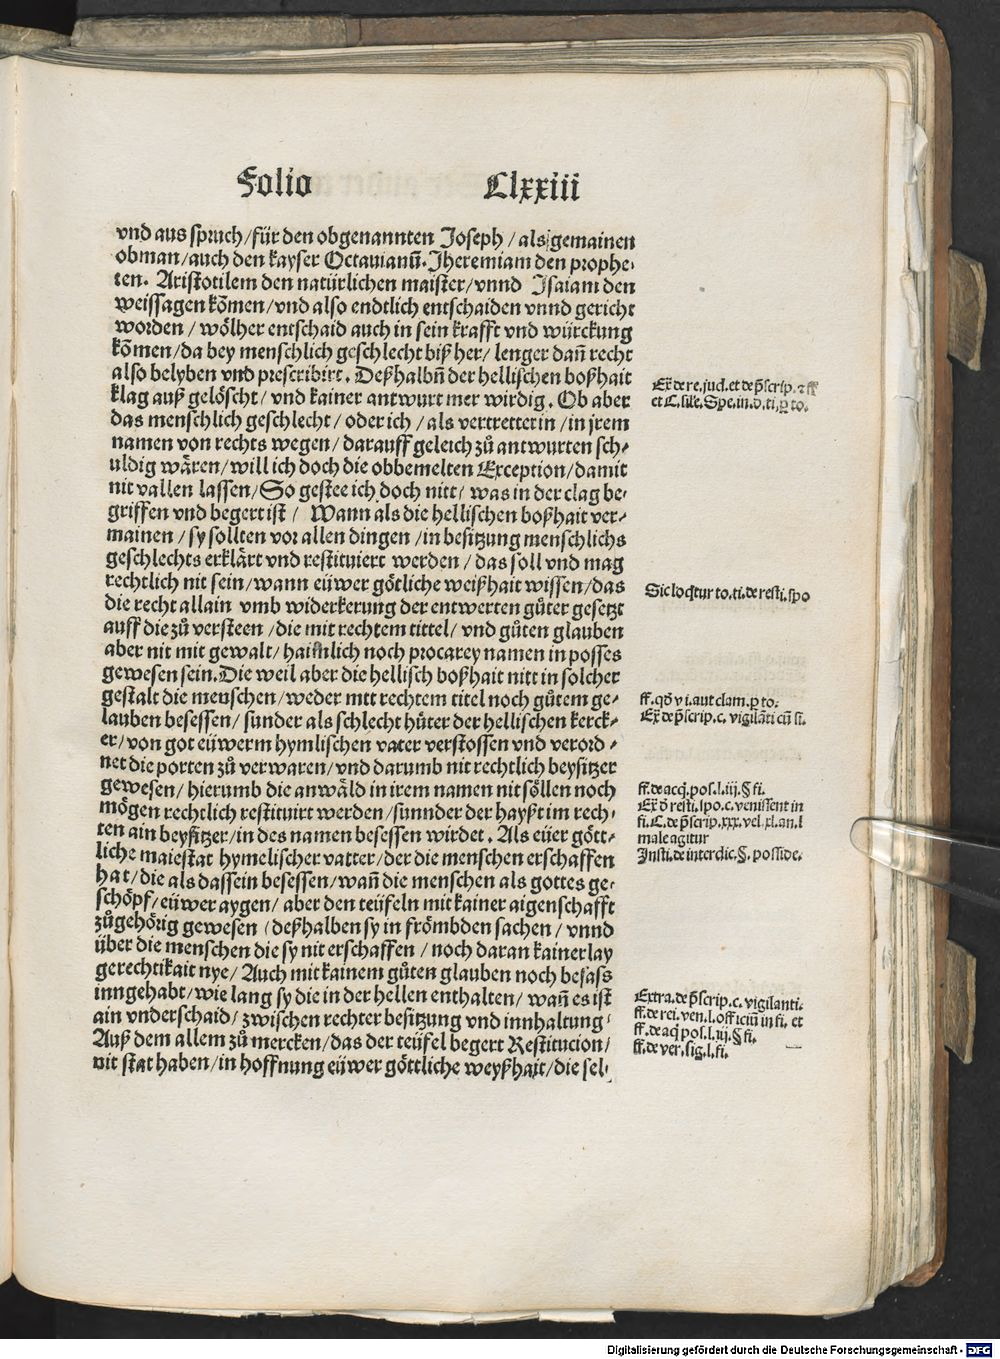 Folio Clxxiii
vnd aus spruch/für den obgenannten Joseph/als gemainen
obman/auch den kayser Octauianū. Jheremiam den prophe-
ten. Aristotilem den natürlichen maister/vnnd Jsaiam den
weissagen kōmen/vnd also endtlich entschaiden vnnd gericht
worden/wölher entschaid auch in sein krafft vnd würckung
kōmen/da bey menschlich geschlecht biß her/lenger dañ recht
also belyben vnd prescribirt. Deßhalbñ der hellischen boßhait
klag auß gelöscht/vnd kainer antwurt mer wirdig. Ob aber
das menschlich geschlecht/oder ich/als vertretterin/in jrem
namen von rechts wegen/darauff geleich zů antwurten sch-
uldig wären/will ich doch die obbemelten Exception/damit
nit vallen lassen/So gestee ich doch nitt/was in der clag be-
griffen vnd begert ist/Wann als die hellischen boßhait ver-
mainen/sy sollten vor allen dingen/in besitzung menschlichs
geschlechts erklärt vnd restituiert werden/das soll vnd mag
rechtlich nit sein/wann eüwer götliche weißhait wissen/das
die recht allain vmb widerkerung der entwerten gůter gesetzt
auff die zů versteen/die mit rechtem tittel/vnd gůten glauben
aber nit mit gewalt/haimlich noch procarey namen in posses
gewesen sein. Die weil aber die hellisch boßhait nitt in solcher
gestalt die menschen/weder mit rechtem titel noch gůtem ge-
lauben besessen/sunder als schlecht hůter der hellischen kerck-
er/von got eüwerm hymlischen vater verstossen vnd verord-
net die porten zů verwaren/vnd darumb nit rechtlich beysitzer
gewesen/hierumb die anwäld in irem namen nit söllen noch
mögen rechtlich restituirt werden/sunnder der hayßt im rech-
ten ain beysitzer/in des namen besessen wirdet. Als eüer gött-
liche maiestat hymelischer vatter/der die menschen erschaffen
hat/die als dassein besessen/wañ die menschen als gottes ge-
schöpf/eüwer aygen/aber den teüfeln mit kainer aigenschafft
zůgehörig gewesen/deßhalben sy in frömbden sachen/vnnd
über die menschen die sy nit erschaffen/noch daran kainerlay
gerechtikait nye/Auch mit kainem gůten glauben noch besass
inngehabt/wie lang sy die in der hellen enthalten/wañ es ist
ain vnderschaid/zwischen rechter besitzung vnd innhaltung-
Auß dem allem zů mercken/das der teüfel begert Restitucion/
nit stat haben/in hoffnung eüwer göttliche weyßhait/die sel-
Ex̄ de re. jud. et de p̄scrip. ⁊ ff
et C. sile. Spe. in. d. ti. ꝑ to.
Sic loq̄tur to. ti. de resti. spo
ff. qđ vi. aut clam. ꝑ to.
Ex̄ de p̄scrip. c. vigilāti cū si.
ff. de acq̄. pos. l. iij. § fi.
Ex̄ đ resti. spo. c. venissent in
fi. C. de p̄scrip. xxx. vel xl. an. l
male agitur
Insti. de interdic. §. posside.
Extra. de p̄scrip. c. vigilanti.
ff. de rei. ven. l. officiū in fi. et
ff. de aq̄ pos. l. iij. § fi.
ff. de ver. sig. l. fi.
Digitalisierung gefördert durch die Deutsche Forschungsgemeinschaft - DFG